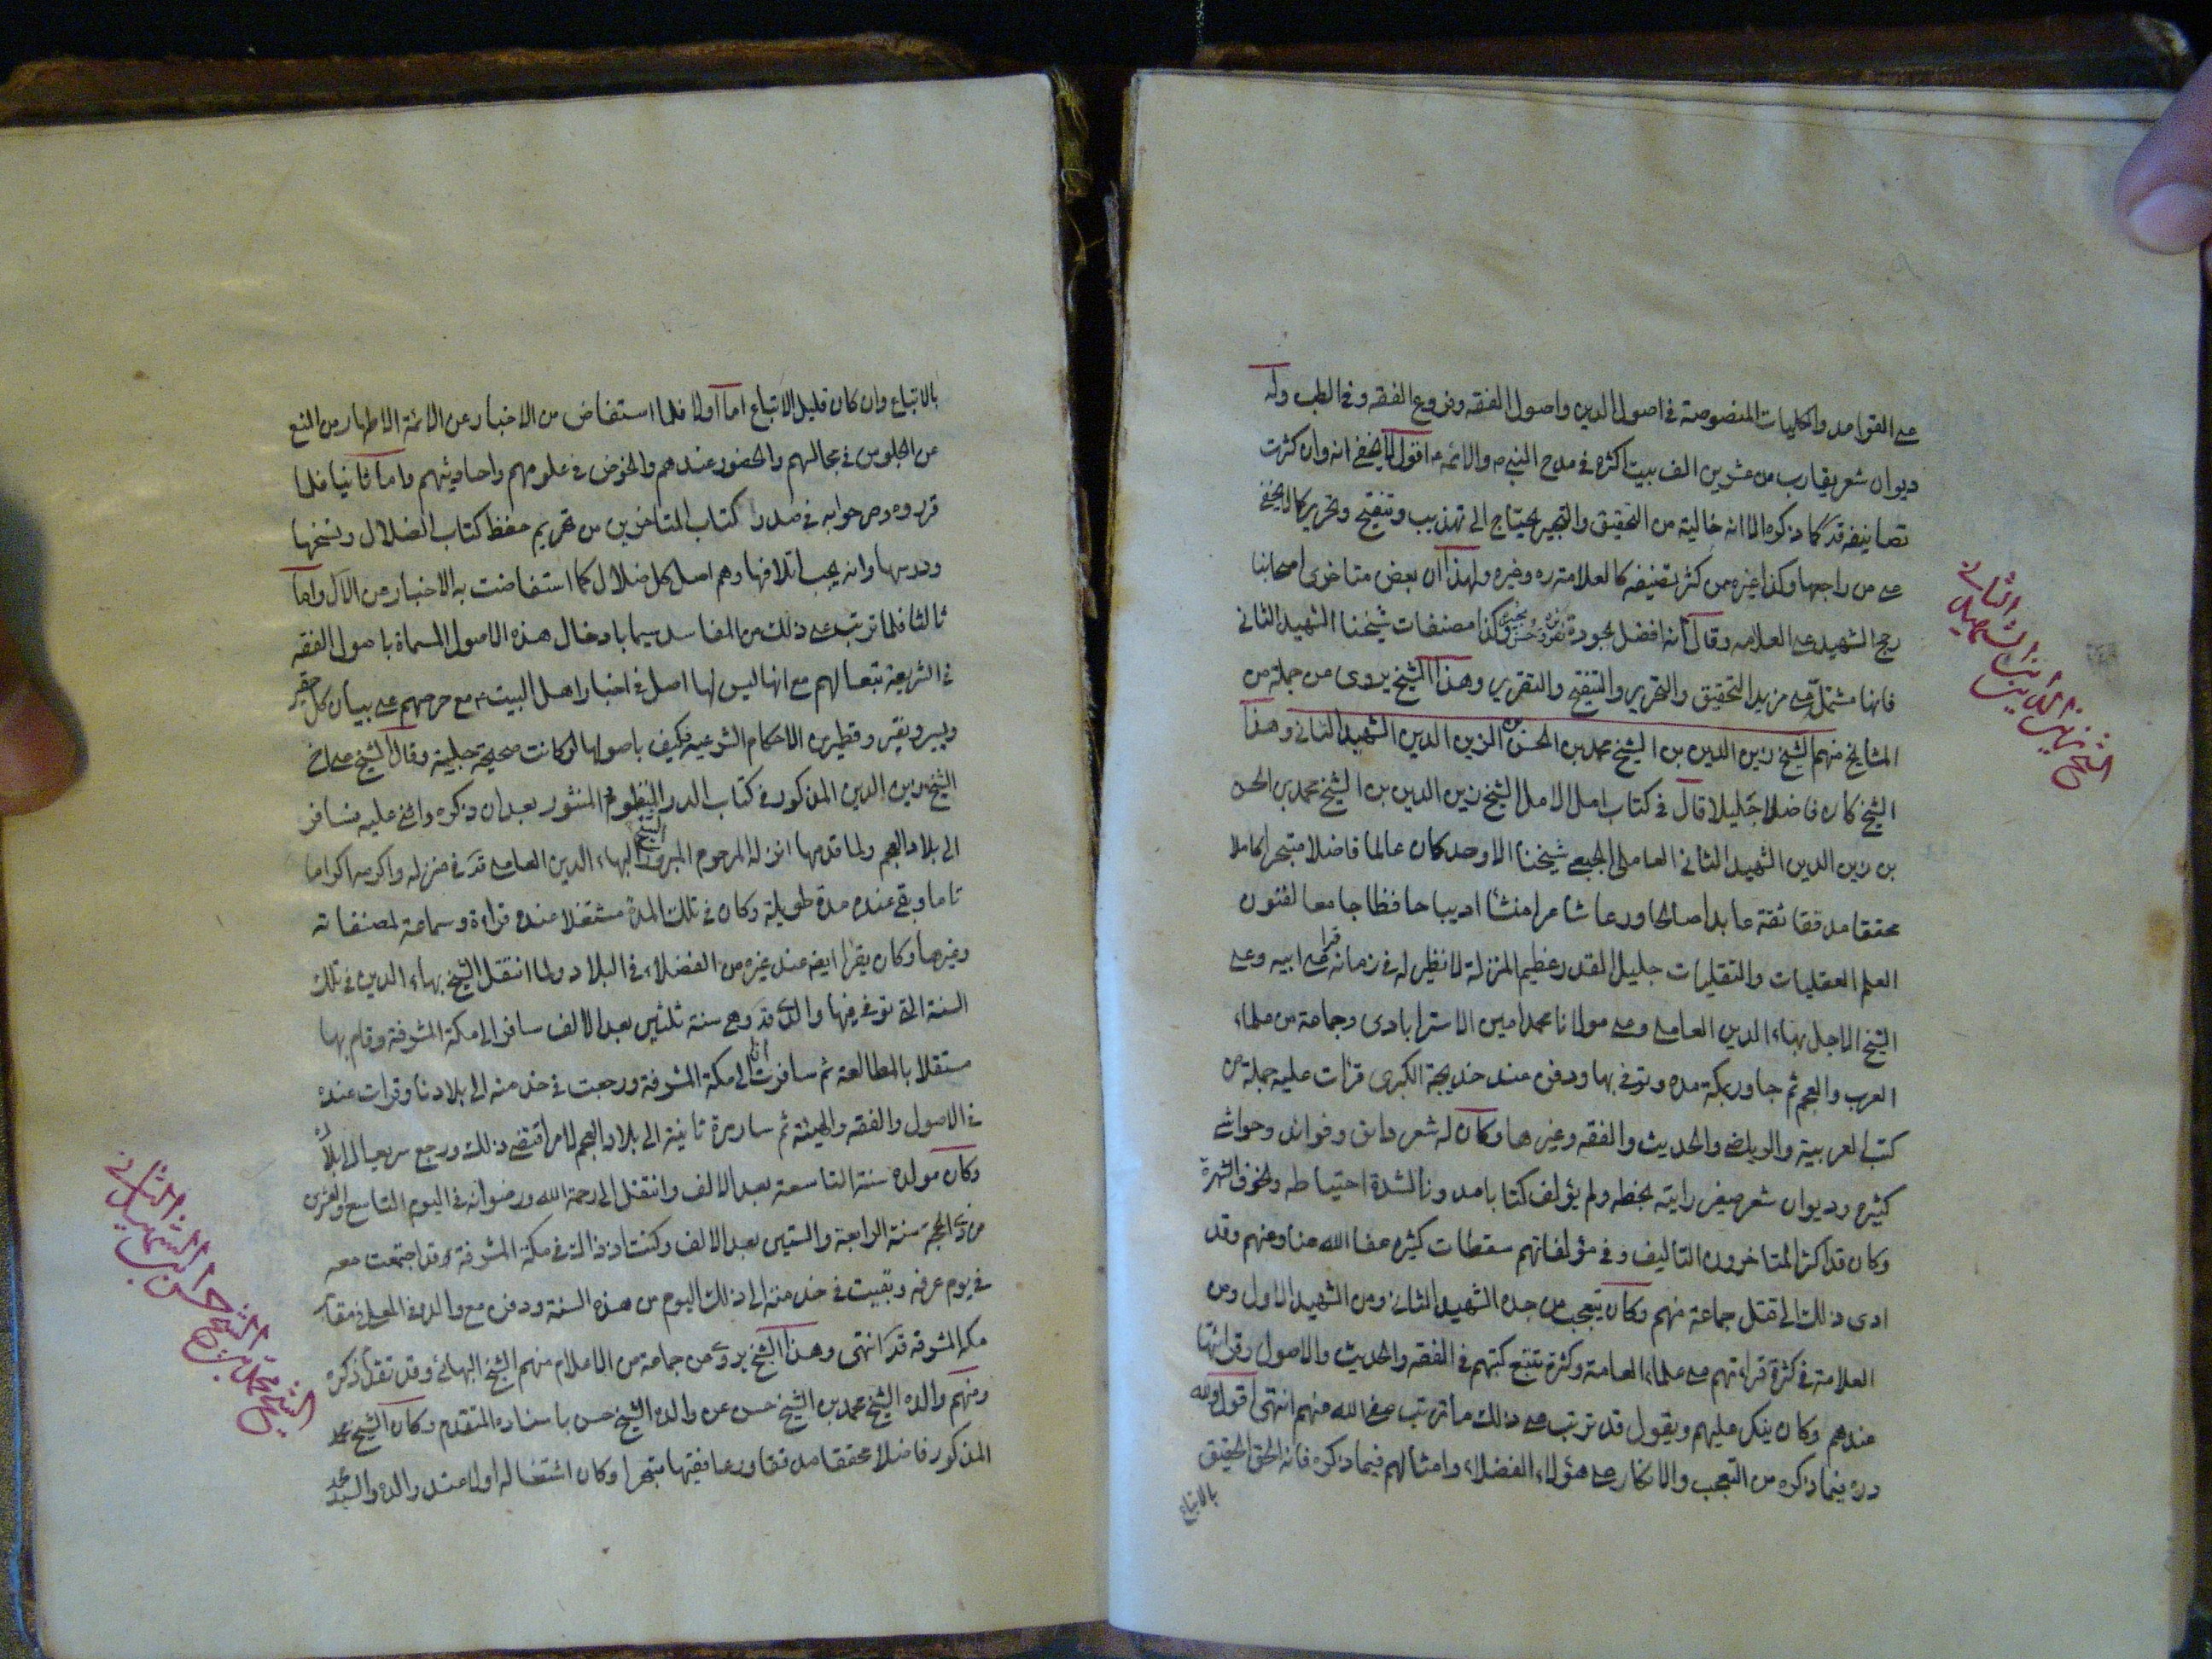 على القواعد والكليات المنصوصة في اصول الدين واصول الفقه وفروع الفقه وفي الطب وله
ديوان شعر يقارب من عشرين الف بيت اكثره في مدح النبي ص والائمه ع اقول لا يخفى انه وان كثرت
تصانيفه قد كما ذكره الا انه خالية من التحقيق والتحبير يحتاج الى تهذيب وتنقيح وتحرير كما لا يخفى
على من راجعها وكذا غيره ممن كثر تصنيفه كالعلامة ره وغيره ولهذا ان بعض متاخرى اصحابنا
رجح الشهيد على العلامه وقال انه افضل بجودة وكذا مصنفات شيخنا الشهيد الثانى
فانها مشتمل على مزيد التحقيق والتحرير والتنقيح والتقرير وهذا الشيخ يروى عن جملة من
المشايخ منهم الشيخ زين الدين بن الشيخ محمد بن الحسن بن الزين الدين الشهيد الثانى وهذا
الشيخ كان فاضلا جليلا قال في كتاب امل الامل الشيخ زين الدين بن الشيخ محمد بن الحسن
بن زين الدين الشهيد الثانى العاملى الجبعى شيخنا الاوحد كان عالما فاضلا متبحرا كاملا
محققا مدققا ثقة عابدا صالحا ورعا شاعرا منشأ اديبا حافظا جامعا لفنون
العلم العقليات والنقليات جليل القدر عظيم المنزلة لا نظير له في زمانه قرا على ابيه وعلى
الشيخ الاجل بهاء الدين العاملى وعلى مولانا محمد امين الاسترابادى وجماعة من علماء
العرب والعجم ثم جاور بمكة مدة وتوفى بها ودفن عند خديجة الكبرى قرات عليه جملة من
كتب العربية والرياضى والحديث والفقه وغيرها وكان له شعر رائق وفوائد وحواشى
كثيره وديوان شعر صغير رايته بخطه ولم يؤلف كتابا مدونا لشدة احتياطه ولخوف الشهرة
وكان قد اكثر المتاخرون التاليف وفى مؤلفاتهم سقطات كثيره عفا الله عنا وعنهم وقد
ادى ذلك الى قتل جماعة منهم وكان يتعجب من جده الشهيد الثانى ومن الشهيد الاول ومن
العلامة في كثرة قراءتهم على علماء العامة وكثرة تتبع كتبهم في الفقه والحديث والاصول وقرائتها
عندهم وكان ينكر عليهم ويقول قد ترتب على ذلك ما ترتب عفى الله عنهم انتهى اقول ولله
دره فيما ذكره من التعجب والانكار على هؤلاء الفضلاء وامثالهم فيما ذكره فانه الحق الحقيق
بالاتباع
الشيخ زين الدين بن الشهيد الثانى
بالاتباع وان كان قليل الاتباع اما اولا فلما استفاض من الاخبار عن الائمة الاطهار من المنع
عن الجلوس في مجالسهم والحضور عندهم والخوض في علومهم واحاديثهم واما ثانيا فلما
قرروه وصرحوا به في صدر كتاب المتاخرين من تحريم حفظ كتاب الضلال ونسخها
ودرسها وانه يجب اتلافها وهم اصل كل ضلال كما استفاضت به الاخبار عن الآل واما
ثالثا فلما ترتب على ذلك من المفاسد سيما بادخال هذه الاصول المسماة باصول الفقه
في الشريعة تبعا لهم مع انها ليس لها اصل في اخبار اهل البيت ع مع حرصهم على بيان كل حقير
ويسير ونقير وقطير من الاحكام الشرعية فكيف باصولها لو كانت صحيحة جلية وقال الشيخ على اخ
الشيخ زين الدين المذكور في كتاب الدر المنظوم المنثور بعد ان ذكره واثنى عليه فسافر
الى بلاد العجم ولما قدمها انزله المرحوم المبرور الشيخ البهاء الدين العاملى قد في منزله واكرمه اكراما
تاما وبقى عنده مدة طويلة وكان في تلك المدة مشتغلا عنده قراءة وسماعة لمصنفاته
وغيرها وكان يقرا ايضه عند غيره من الفضلاء في البلاد ولما انتقل الشيخ بهاء الدين في تلك
السنة التى توفى فيها والدى قد وهى سنة ثلثين بعد الالف سافر الى مكة المشرفة وقام بها
مستقلا بالمطالعة ثم سافرت انا الى مكة المشرفة ورجعت في خدمته الى بلادنا وقرات عنده
في الاصول والفقه والهيئة ثم سار مرة ثانية الى بلاد العجم لامر اقتضى ذلك ورجع سريعا الى
وكان مولده سنة التاسعة بعد الالف وانتقل الى رحمة الله ورضوانه في اليوم التاسع والعشرين
من ذى الحجة سنة الرابعة والستين بعد الالف وكنت اذ ذاك في مكة المشرفة وقد اجتمعت معه
في يوم عرفه وبقيت في خدمته الى ذلك اليوم من هذه السنة ودفن مع والده في المعلى في مقابر
مكه المشرفه قد انتهى وهذا الشيخ يروى عن جماعة من الاعلام منهم الشيخ البهائى وقد تقدم ذكره
ومنهم والده الشيخ محمد بن الشيخ حسن عن والده الشيخ حسن باسناده المتقدم وكان الشيخ محمد
المذكور فاضلا محققا مدققا ورعا فقيها متبحرا وكان اشتغاله اولا عند والده والسيد محمد
الشيخ محمد بن الشيخ حسن بن الشهيد الثانى